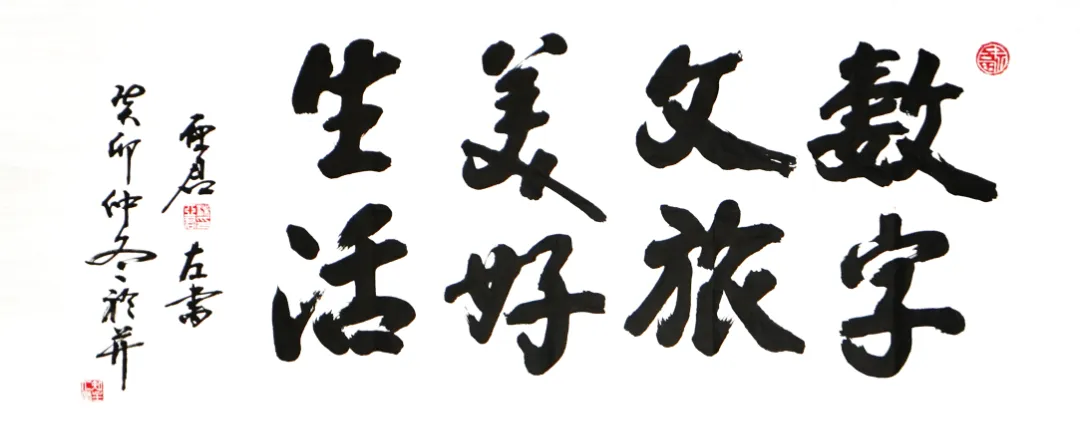 數字
文旅
美好
生活
左書
癸卯仲冬於并